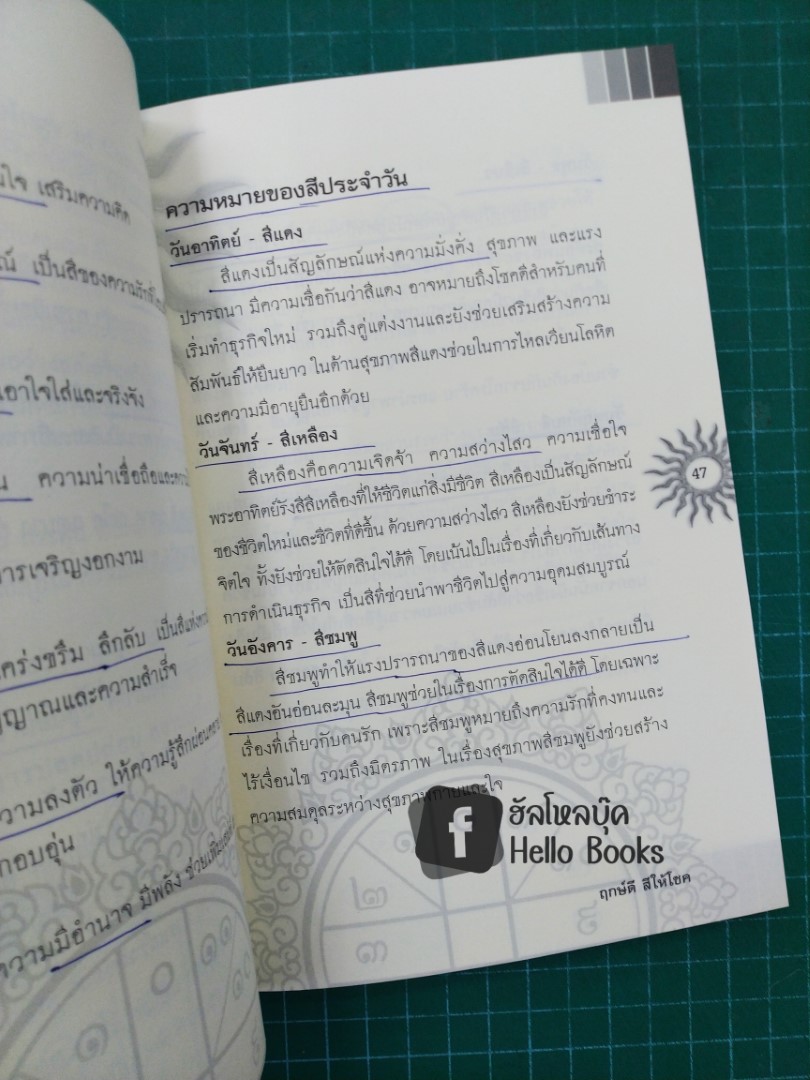 เสริมความคิด
เป็นสีของความรัก
เอาใจใส่และจริงจัง
ความน่าเชื่อถือและ
การเจริญงอกงาม
เคร่งขรึม ลึกลับ เป็นสีแห่ง
ญญาณและความสำเร็จ
ความลงตัว ให้ความรู้สึก
กอบอุ่น
ความมีอำนาจ มีพลัง
ความหมายของสีประจำวัน
วันอาทิตย์ - สีแดง
สีแดงเป็นสัญลักษณ์แห่งความมั่งคั่ง สุขภาพ และแรง
ปรารถนา มีความเชื่อกันว่าสีแดง อาจหมายถึงโชคดีสำหรับคนที่
เริ่มทำธุรกิจใหม่ รวมถึงคู่แต่งงานและยังช่วยเสริมสร้างความ
สัมพันธ์ให้ยืนยาว ในด้านสุขภาพสีแดงช่วยในการไหลเวียนโลหิต
และความมีอายุยืนอีกด้วย
วันจันทร์ - สีเหลือง
สีเหลืองคือความเจิดจ้า ความสว่างไสว ความเชื่อใจ
พระอาทิตย์รังสีสีเหลืองที่ให้ชีวิตแก่สิ่งมีชีวิต สีเหลืองเป็นสัญลักษณ์
ของชีวิตใหม่และชีวิตที่ดีขึ้น ด้วยความสว่างไสว สีเหลืองยังช่วยชำระ
จิตใจ ทั้งยังช่วยให้ตัดสินใจได้ดี โดยเน้นไปในเรื่องที่เกี่ยวกับเส้นทาง
การดำเนินธุรกิจ เป็นสีที่ช่วยนำพาชีวิตไปสู่ความอุดมสมบูรณ์
วันอังคาร - สีชมพู
สีชมพูทำให้แรงปรารถนาของสีแดงอ่อนโยนลงกลายเป็น
สีแดงอันอ่อนละมุน สีชมพูช่วยในเรื่องการตัดสินใจได้ดี โดยเฉพาะ
เรื่องที่เกี่ยวกับคนรัก เพราะสีชมพูหมายถึงความรักที่คงทนและ
ไร้เงื่อนไข รวมถึงมิตรภาพ ในเรื่องสุขภาพสีชมพูยังช่วยสร้าง
ความสมดุลระหว่างสุขภาพกายและใจ
47
f
ฮัลโหลบุ๊ค
Hello Books
ฤกษ์ดี สีให้โชค